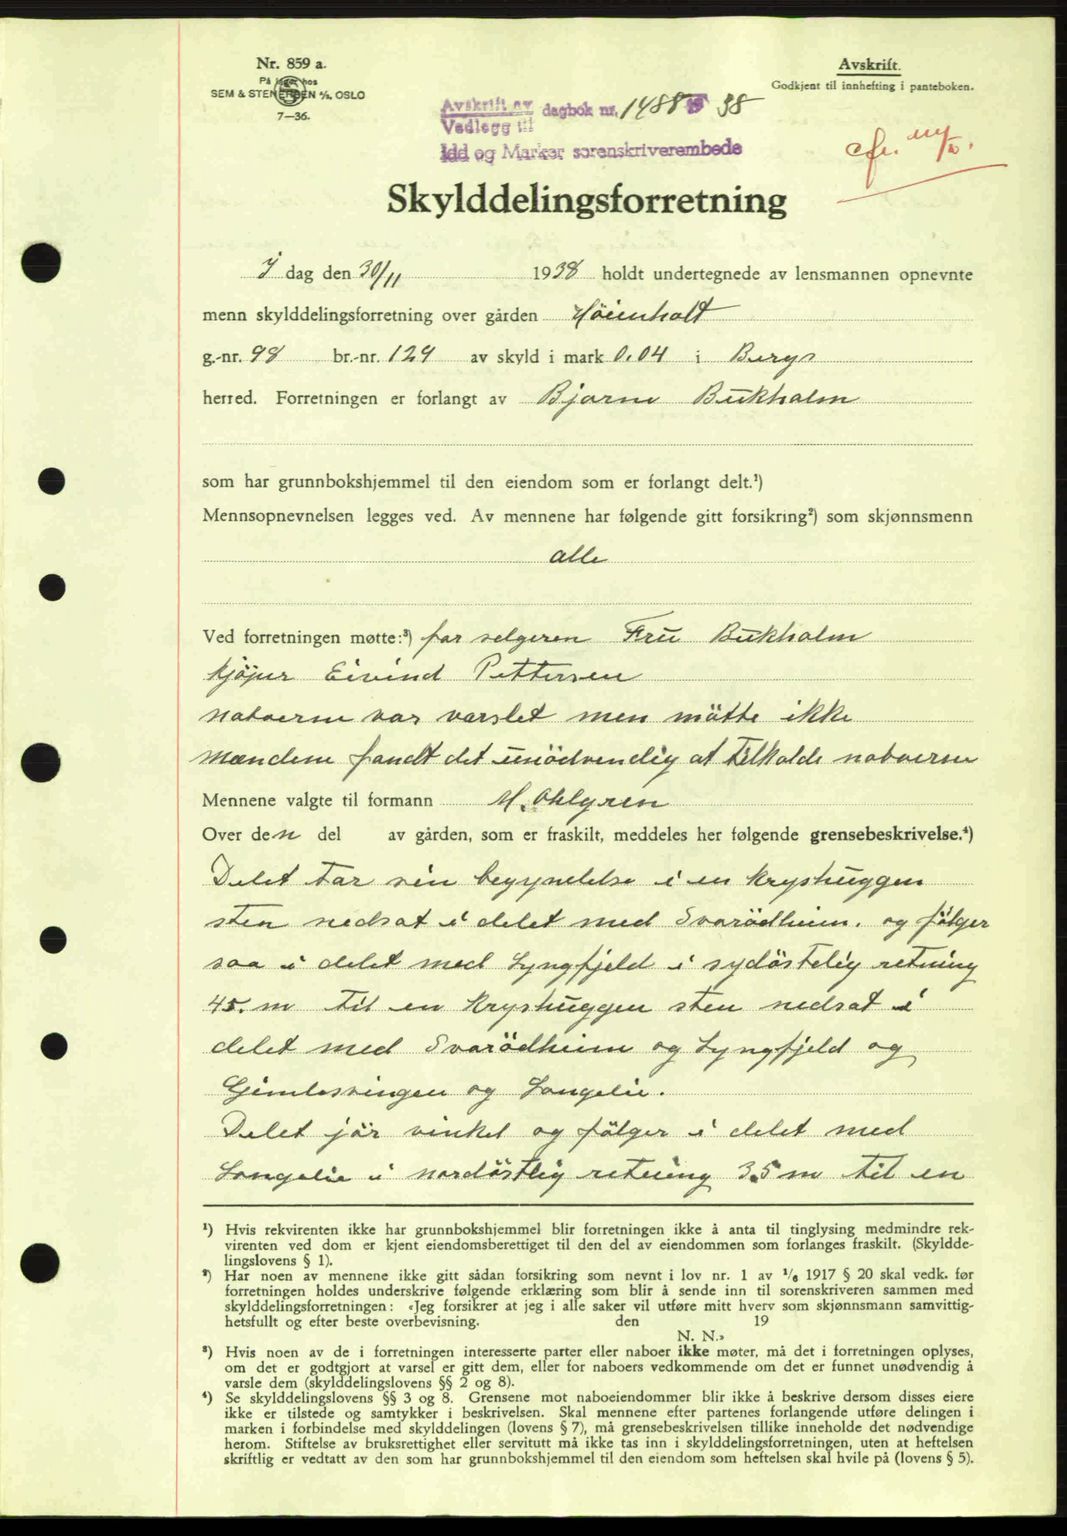 Nr. 859 a.
På lager hos
SEM & STENERSEN A/S, OSLO
7—36.
Avskrift.
Godkjent til innhefting i panteboken.
Avskrift av
Vedlegg til dagbok nr. 1488 38
Idd og Marker sorenskriverembede
cfr.
Skylddelingsforretning
I dag den 30/11 1938 holdt undertegnede av lensmannen opnevnte
menn skylddelingsforretning over gården Höienholt
g.-nr. 98 br.-nr. 129 av skyld i mark 0.04 i Bergs
herred. Forretningen er forlangt av Bjarne Bukholm
som har grunnbokshjemmel til den eiendom som er forlangt delt.¹)
Mennsopnevnelsen legges ved. Av mennene har følgende gitt forsikring²) som skjønnsmenn
alle
Ved forretningen møtte:³) for selgeren Fru Bukholm
kjöper Eivind Pettersen
naboerne var varslet men mötte ikke
mændene fandt det unödvendig at tilkalde naboerne
Mennene valgte til formann M. Ohlgren
Over den del av gården, som er fraskilt, meddeles her følgende grensebeskrivelse.⁴)
Delet tar sin begynelse i en kryshuggen
sten nedsat i delet med Svarödheim. og fölger
saa i delet med Lyngfjeld i sydöstelig retning
45. m til en kryshuggen sten nedsat i
delet med Svarödheim og Lyngfjeld og
Gimlesvingen og Langelie.
Delet jör vinkel og fölger i delet med
Langelie i nordöstlig retning 3.5 m til en
¹) Hvis rekvirenten ikke har grunnbokshjemmel blir forretningen ikke å anta til tinglysing medmindre rek-
virenten ved dom er kjent eiendomsberettiget til den del av eiendommen som forlanges fraskilt. (Skyldde-
lingslovens § 1).
²) Har noen av mennene ikke gitt sådan forsikring som nevnt i lov nr. 1 av 1/6 1917 § 20 skal vedk. før
forretningen holdes underskrive følgende erklæring som blir å sende inn til sorenskriveren sammen med
skylddelingsforretningen: «Jeg forsikrer at jeg i alle saker vil utføre mitt hverv som skjønnsmann samvittig-
hetsfullt og efter beste overbevisning. den 19
N. N.»
³) Hvis noen av de i forretningen interesserte parter eller naboer ikke møter, må det i forretningen oplyses,
om det er godtgjort at varsel er gitt dem, eller for naboers vedkommende om det er funnet unødvendig å
varsle dem (skylddelingslovens §§ 2 og 8).
⁴) Se skylddelingslovens §§ 3 og 8. Grensene mot naboeiendommer blir ikke å beskrive dersom disses eiere
ikke er tilstede og samtykker i beskrivelsen. Skal mennene efter partenes forlangende utføre delingen i
marken i forbindelse med skylddelingen (lovens § 7), må grensebeskrivelsen tillike inneholde det nødvendige
herom. Stiftelse av bruksrettighet eller servitutt må ikke tas inn i skylddelingsforretningen, uten at heftelsen
skriftlig er vedtatt av den som har grunnbokshjemmel til den eiendom som heftelsen skal hvile på (lovens § 5).